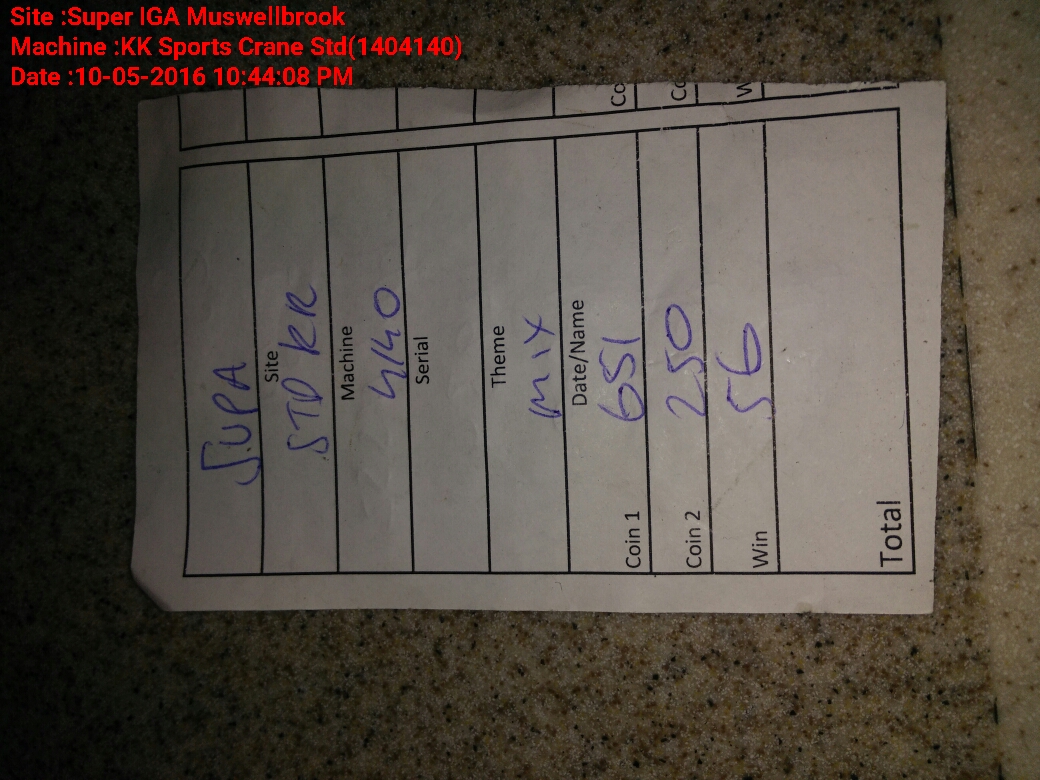 Site :Super IGA Muswellbrook
Machine :KK Sports Crane Std(1404140)
Date :10-05-2016 10:44:08 PM
Co
Co
W
SUPA
Site
STD KK
Machine
4140
Serial
Theme
MIX
Date/Name
Coin 1 651
Coin 2 250
Win 56
Total